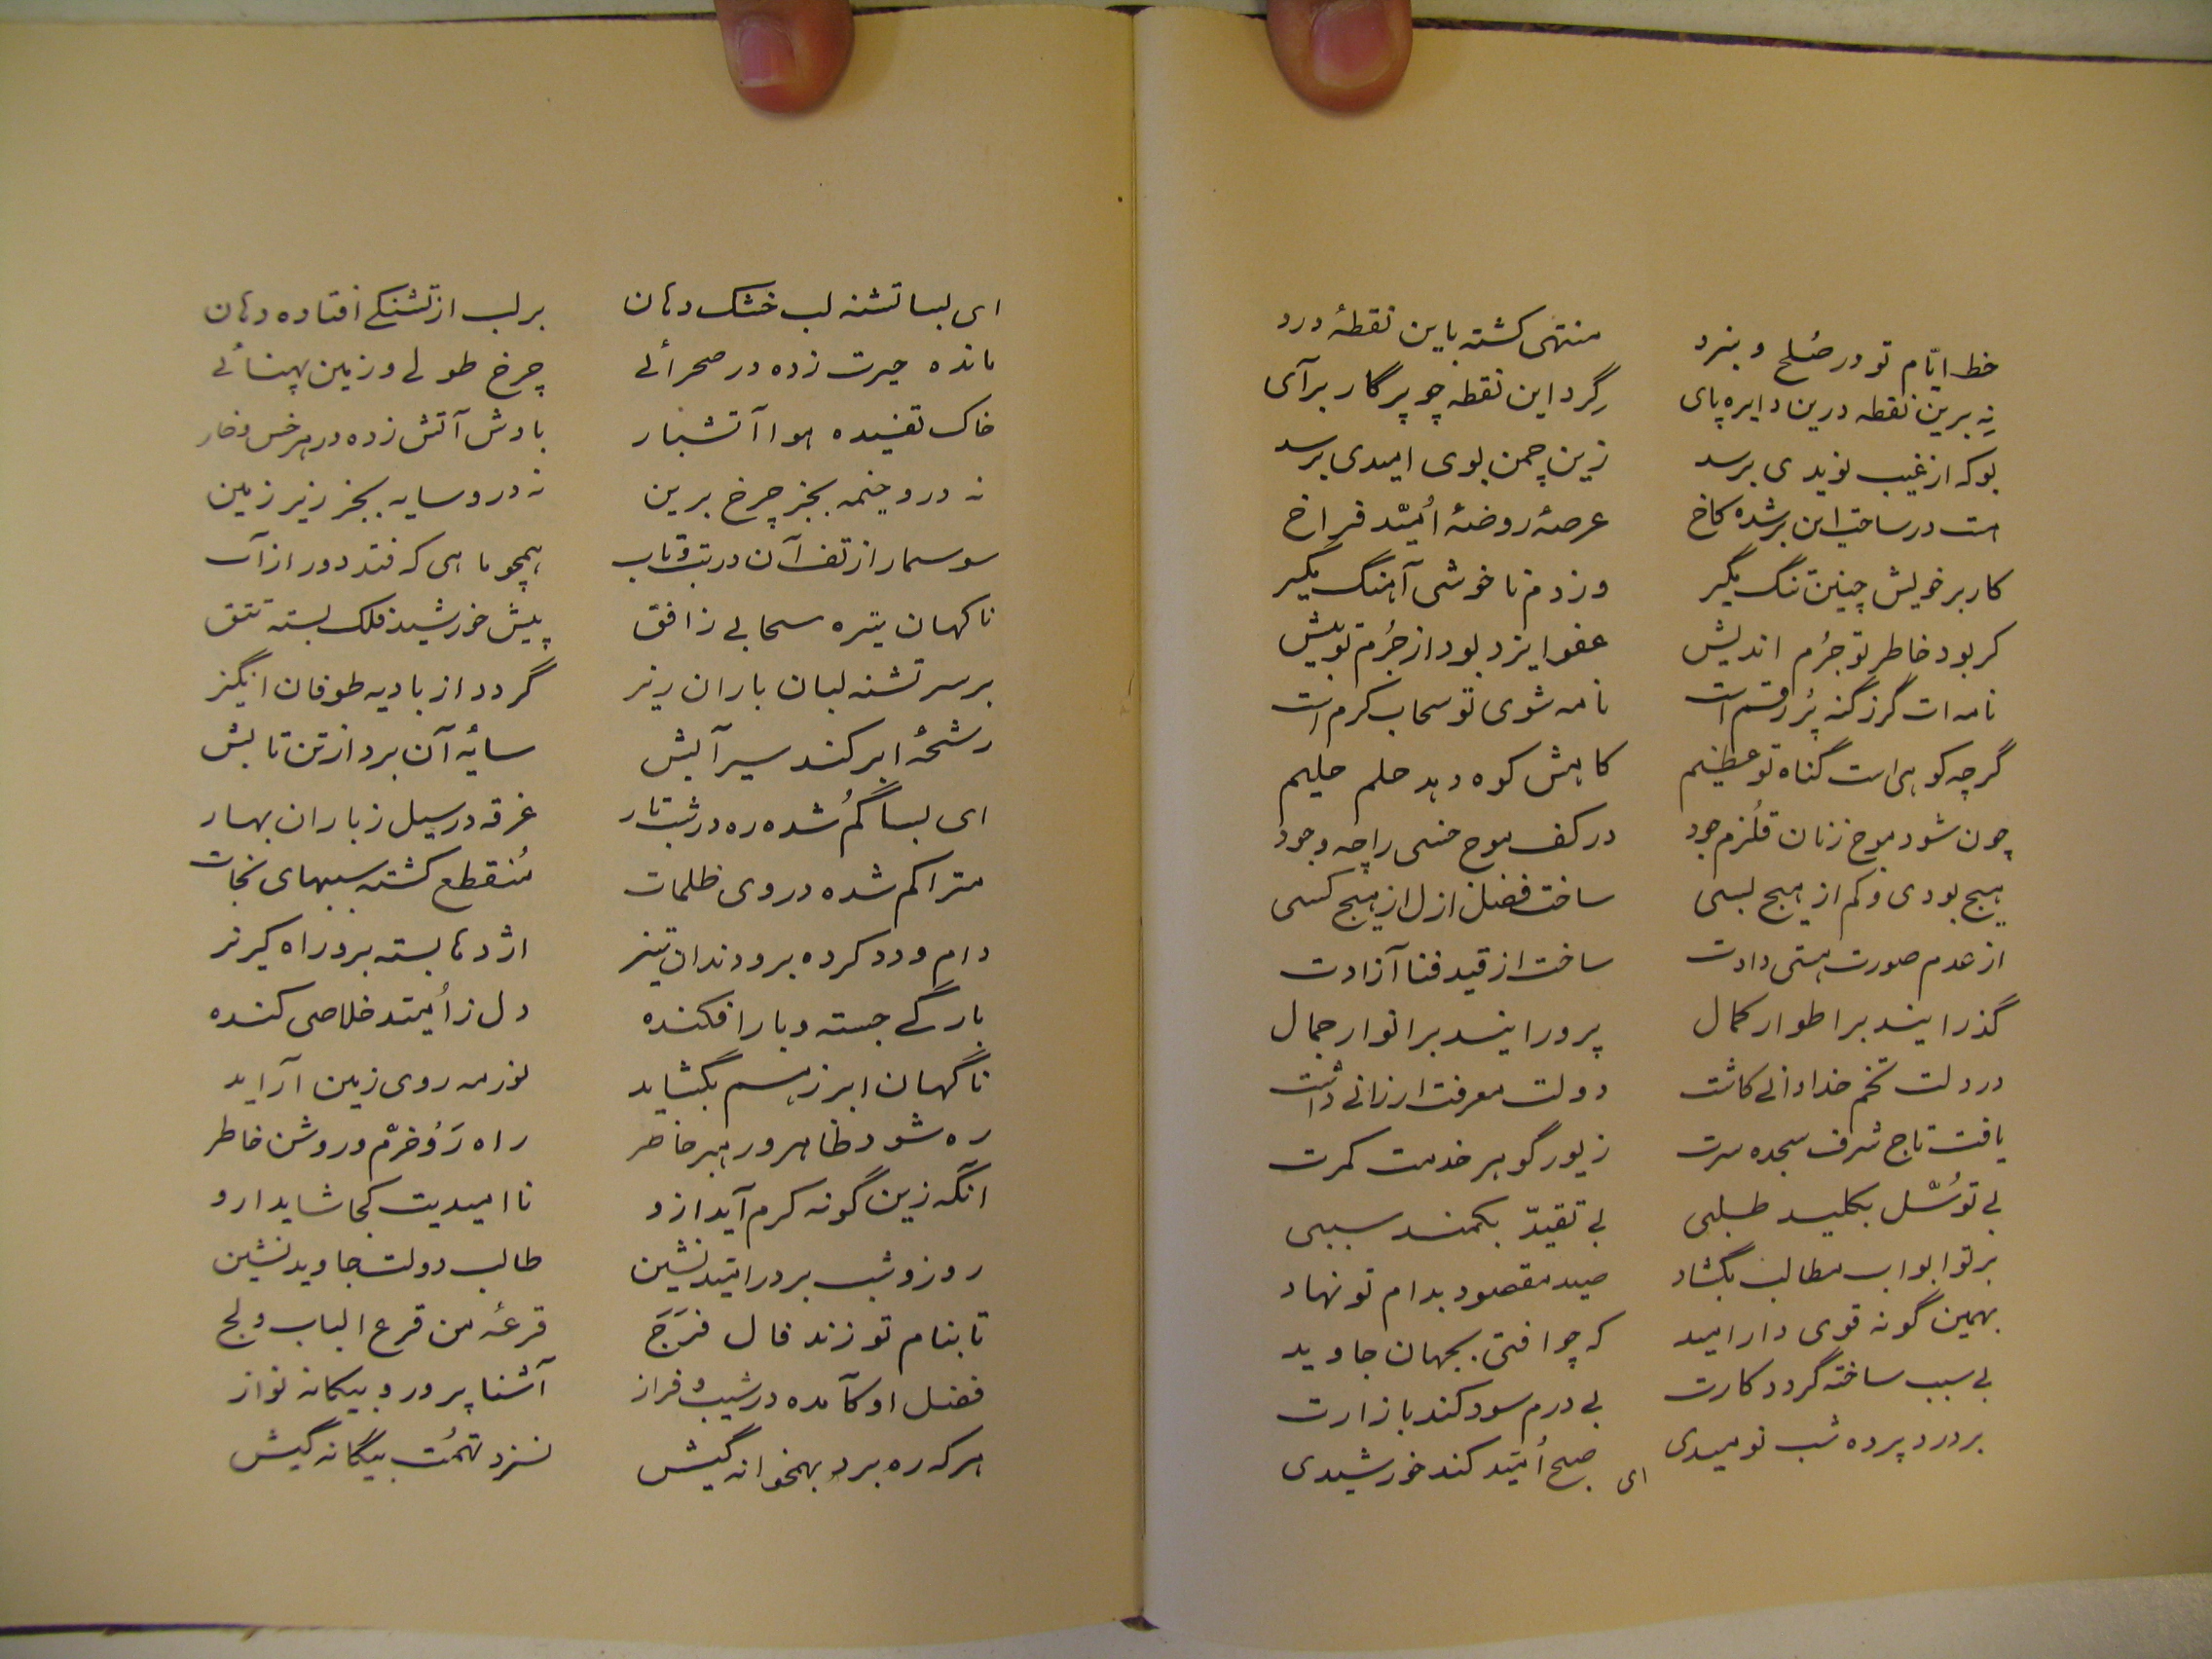 خط ایّام تو در صُلح و نبرد منتهی گشته باین نقطهٔ درد
نِه برین نقطه درین دایره پای گِرد این نقطه چو پرگار برآی
بو که از غیب نویدی برسد زین چمن بوی امیدی برسد
هست در ساحت این برشده کاخ عرصهٔ روضهٔ اُمیّد فراخ
کار بر خویش چنین تنگ مگیر وز دم ناخوشی آهنگ مگیر
گر بود خاطر تو جرُم اندیش عفو ایزد بود از جُرم تو بیش
نامه‌ات گر ز گنه پُر رقم است نامه شوی تو سحاب کرم است
گرچه کوهی است گناه تو عظیم کاهش کوه دهد حلم حلیم
چون شود موج زنان قلُزم جود در کف موج خسی را چه وجود
هیچ بودی و کم از هیچ بسی ساخت فضل ازل از هیچ کسی
از عدم صورت هستی دادت ساخت از قید فنا آزادت
گذرانید بر اطوار کمال پرورانید بر انوار جمال
در دلت تخم خدادانی کاشت دولت معرفت ارزانی داشت
یافت تاج شرف سجده سرت زیور گوهر خدمت کمرت
بی توسُّل بکلید طلبی بی تقیدّ بکمند سببی
بر تو ابواب مطالب بگشاد صید مقصود بدام تو نهاد
بهمین گونه قوی دار امید که چو افتی بجهان جاوید
بی سبب ساخته گردد کارت بی درم سود کند بازارت
بر درد پرده شب نومیدی صبح اُمیّد کند خورشیدی
ای
ای بسا تشنه لب خشک دهان بر لب از تشنگی افتاده دهان
مانده حیرت زده در صحرائی چرخ طولی و زمین پهنائی
خاک تفسیده هوا آتشبار بادش آتش زده در هر خس و خار
نه درو خیمه بجز چرخ برین نه درو سایه بجز زیر زمین
سوسمار از تف آن در تب و تاب همچو ماهی که فتد دور از آب
ناگهان تیره سحابی ز افق پیش خورشید فلک بسته تتق
بر سر تشنه لبان باران ریز گردد از بادیه طوفان انگیز
رشحهٔ ابر کند سیرآبش سایهٔ آن برد از تن تابش
ای بسا گُم شده ره در شب تار غرقه در سیل ز باران بهار
متراکم شده در وی ظلمات مُنقطع گشته سببهای نجات
دام و دد کرده برو دندان تیز اژدها بسته برو راه گریز
بارگی جسته و بار افکنده دل ز اُمیّد خلاصی کنده
ناگهان ابر ز هم بگشاید نور مه روی زمین آراید
ره شود ظاهر و رهبر حاضر راه رَوُ خرّم و روشن خاطر
آنکه زین گونه کرم آید ازو ناامیدیت کجا شاید ازو
روز و شب بر در امیّد نشین طالب دولت جاوید نشین
تا بنام تو زند فال فَرَج قرعهٔ من قرع الباب ولج
فضل او کآمده در شیب و فراز آشنا پرور و بیگانه نواز
هر که ره برد بهمخوانه گیش نسزد تهُمت بیگانه گیش